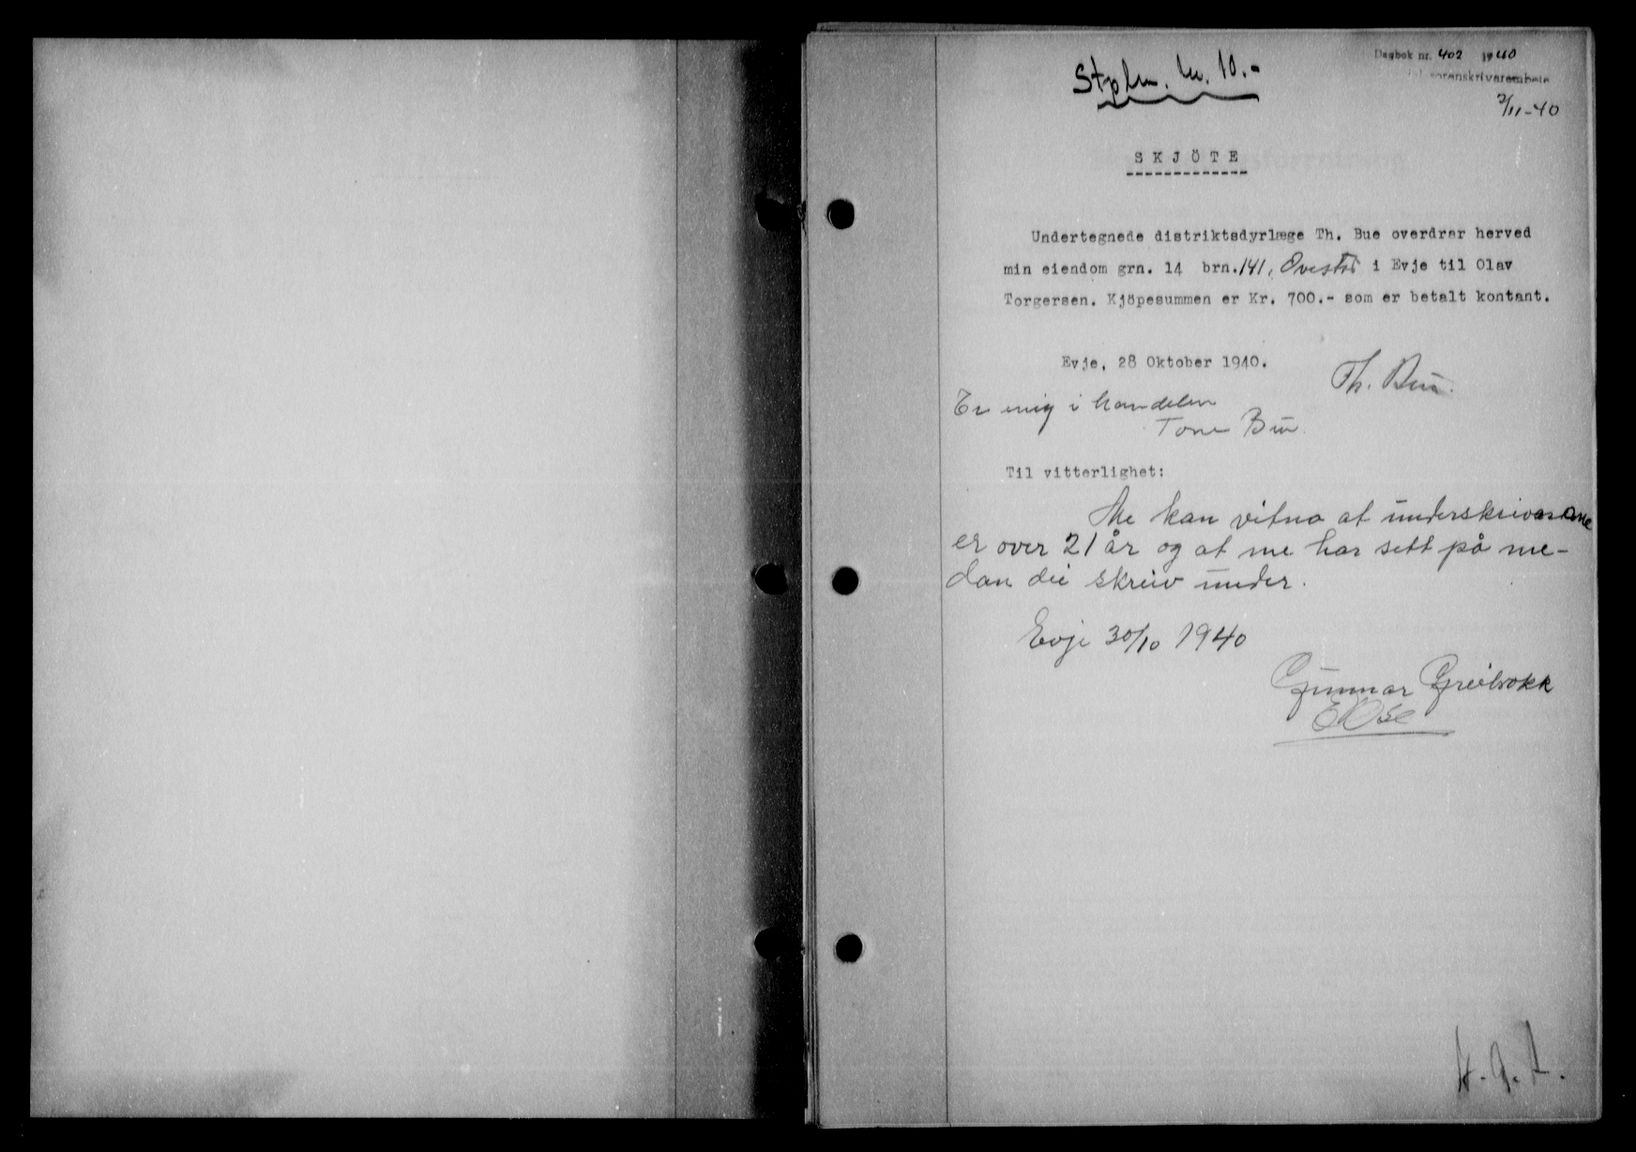 Stplm. kr. 10.-
Dagbok nr. 402 1940
sorenskrivarembete
2/11-40
SKJÖTE
Undertegnede distriktsdyrlæge Th. Bue overdrar herved
min eiendom grn. 14 brn. 141, i Evje til Olav
Torgersen. Kjöpesummen er Kr. 700.- som er betalt kontant.
Evje, 28 Oktober 1940.
Th. Bue.
Er enig i handelen
Tone Bue.
Til vitterlighet:
Me kan vitna at underskrivarane
er over 21 år og at me har sett på me-
dan dei skreiv under.
Evje 30/10 1940
Gunnar